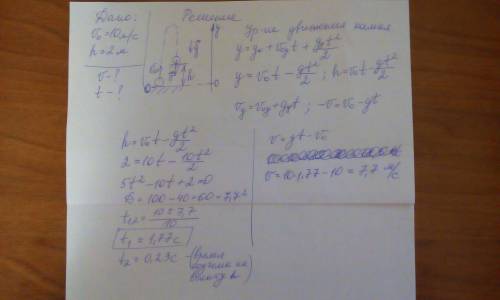 Дано:
v₀=10м/с
h=2м
v-?
t-?
Решение
y
0
h
Ур-ие движения камня
y=y₀+v₀yt+gyt²/2
y=v₀t-gt²/2; h=v₀t-gt²/2
vy=v₀y+gyt; -v=v₀-gt
h=v₀t-gt²/2
2=10t-10t²/2
5t²-10t+2=0
D=100-40=60=7,7²
t₁,₂=10±7,7/10
t₁=1,77с
t₂=0,23с -(время
подъёма на
высоту h)
v=gt-v₀
v=10·1,77-10=7,7 м/с